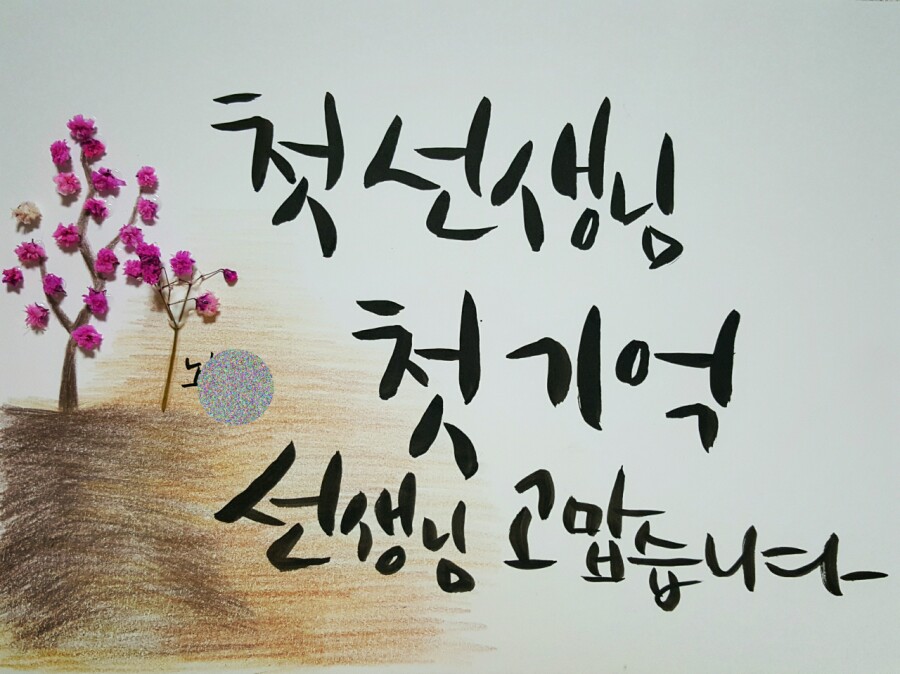 첫 선생님
첫 기억
선생님 고맙습니다